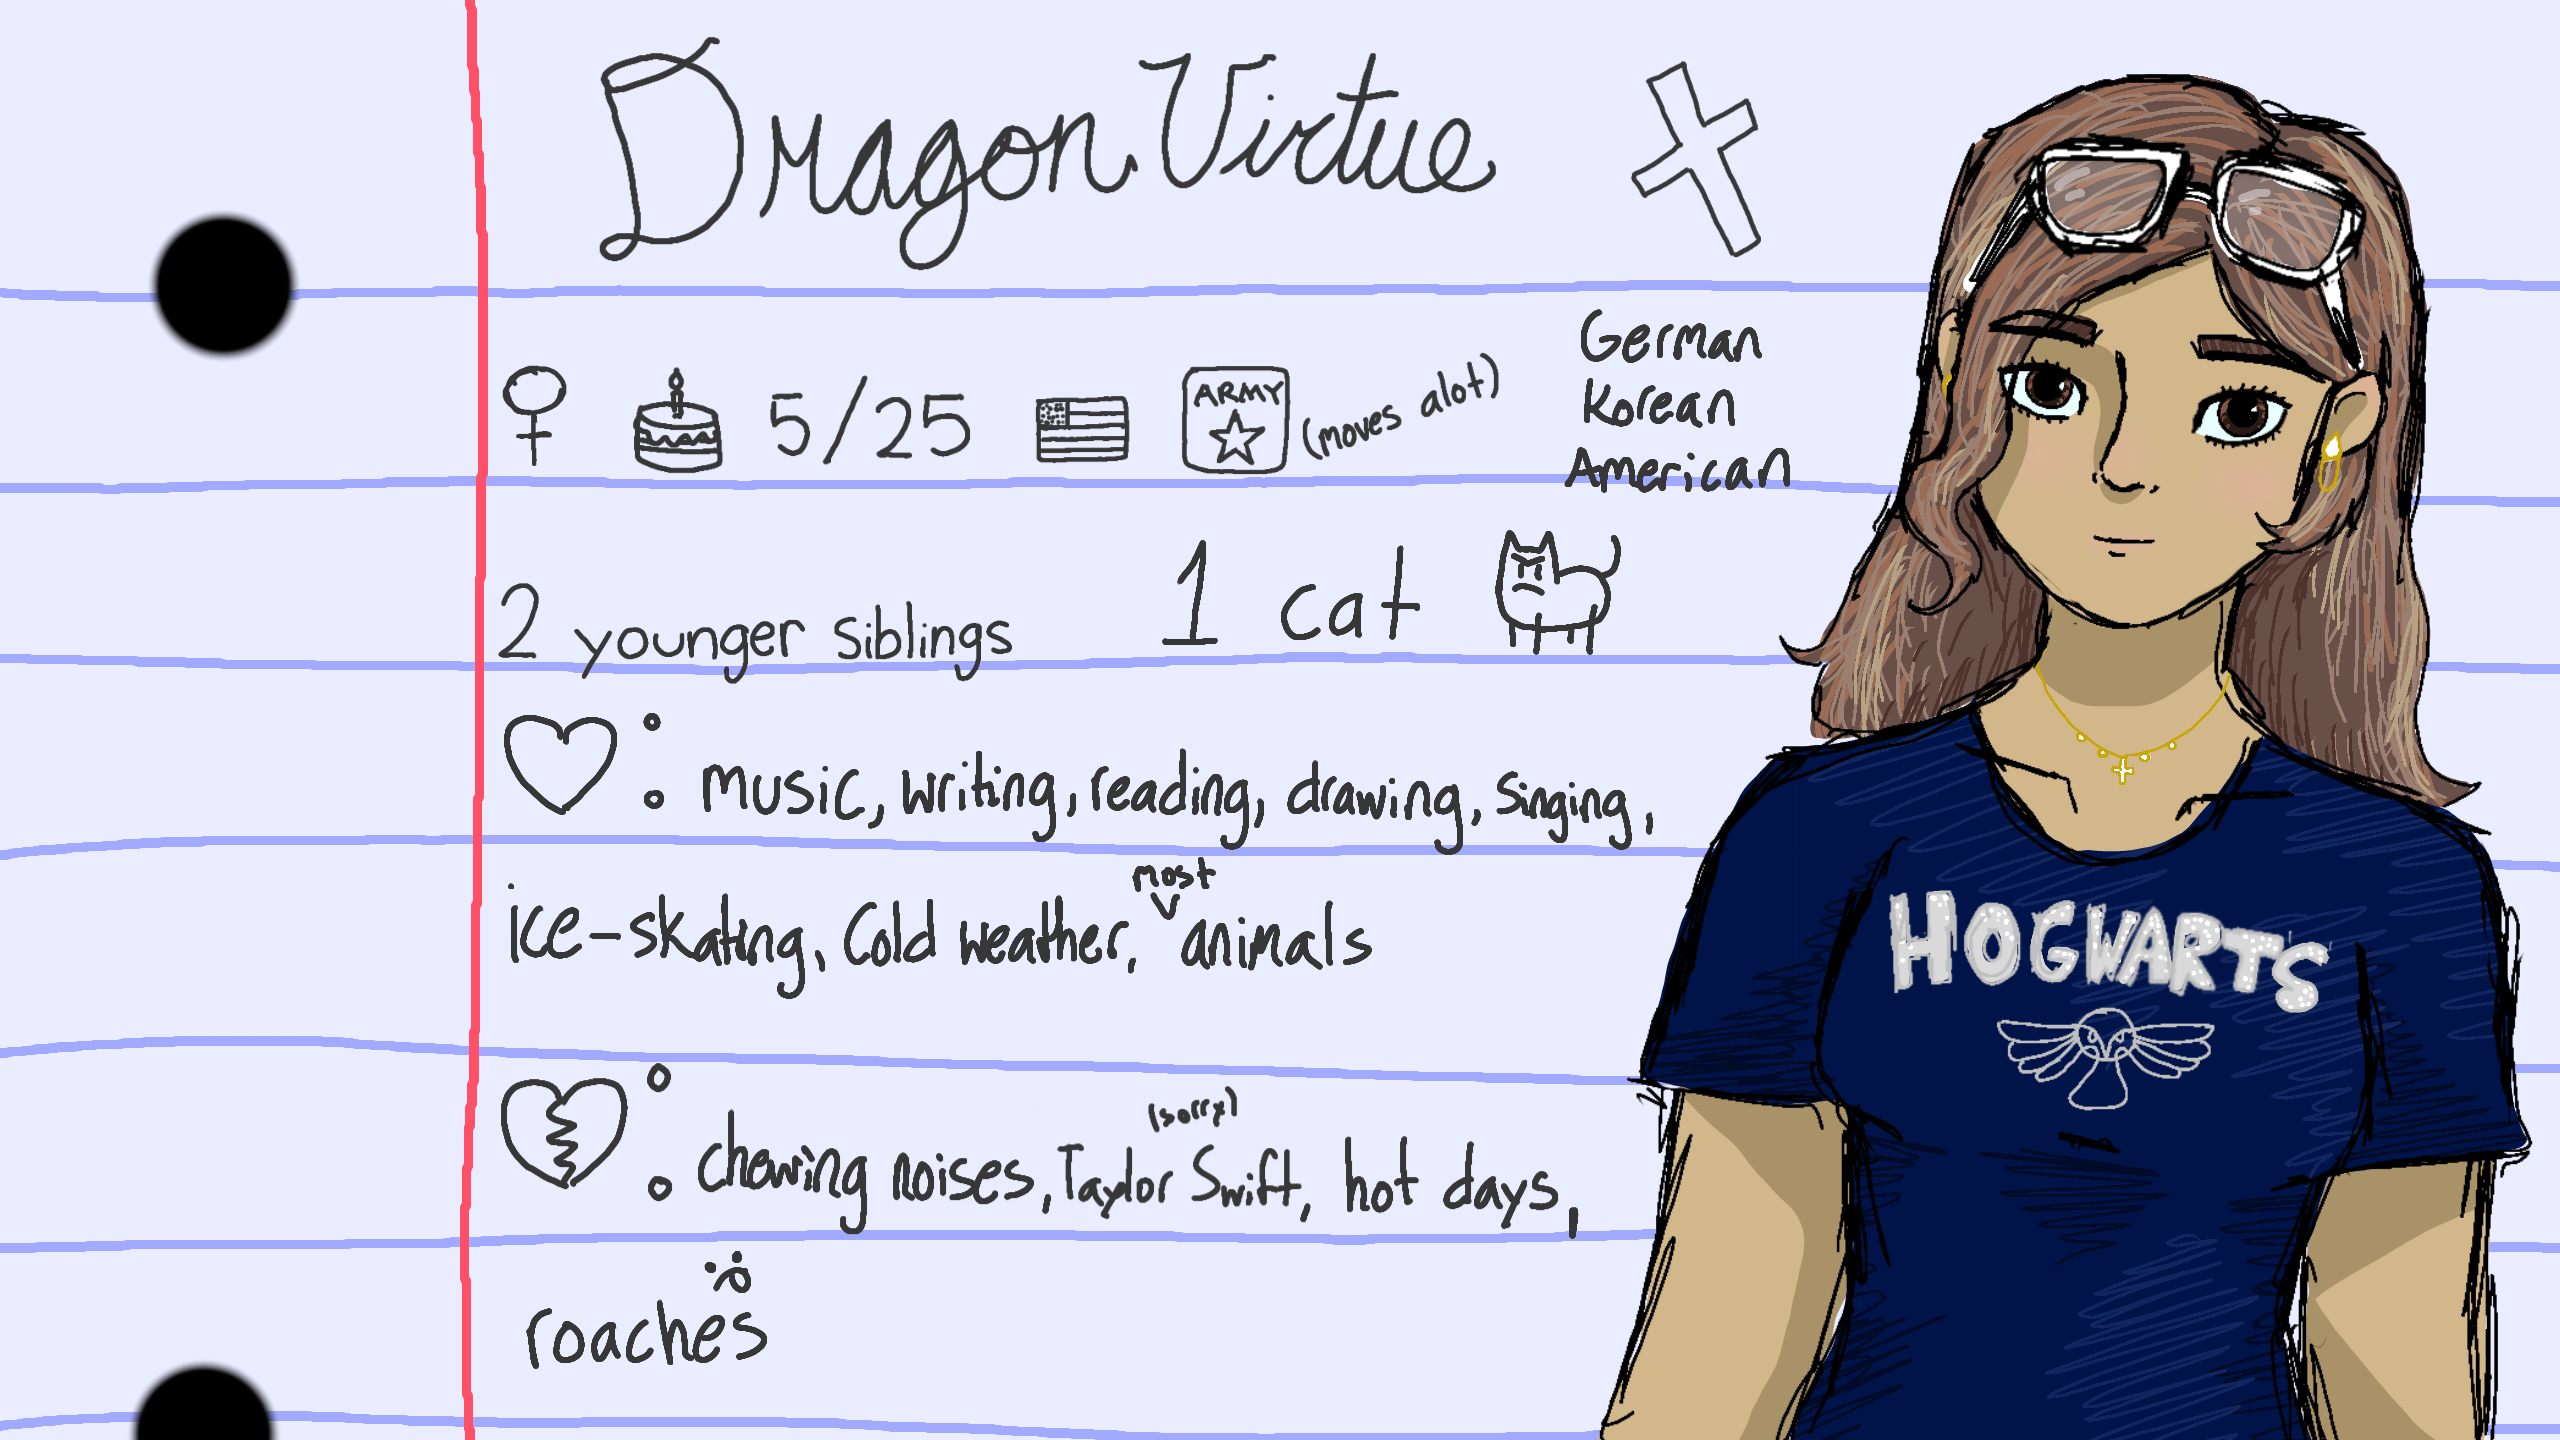 Dragon Virtue
5/25
ARMY
(moves alot)
German
Korean
American
2 younger siblings
1 cat
: music, writing, reading, drawing, singing,
most
ice-skating, Cold weather, animals
(sorry)
: chewing noises, Taylor Swift, hot days,
roaches
HOGWARTS